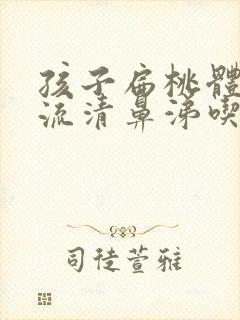 孩子扁桃體
流清鼻涕喫
司徒萱雅